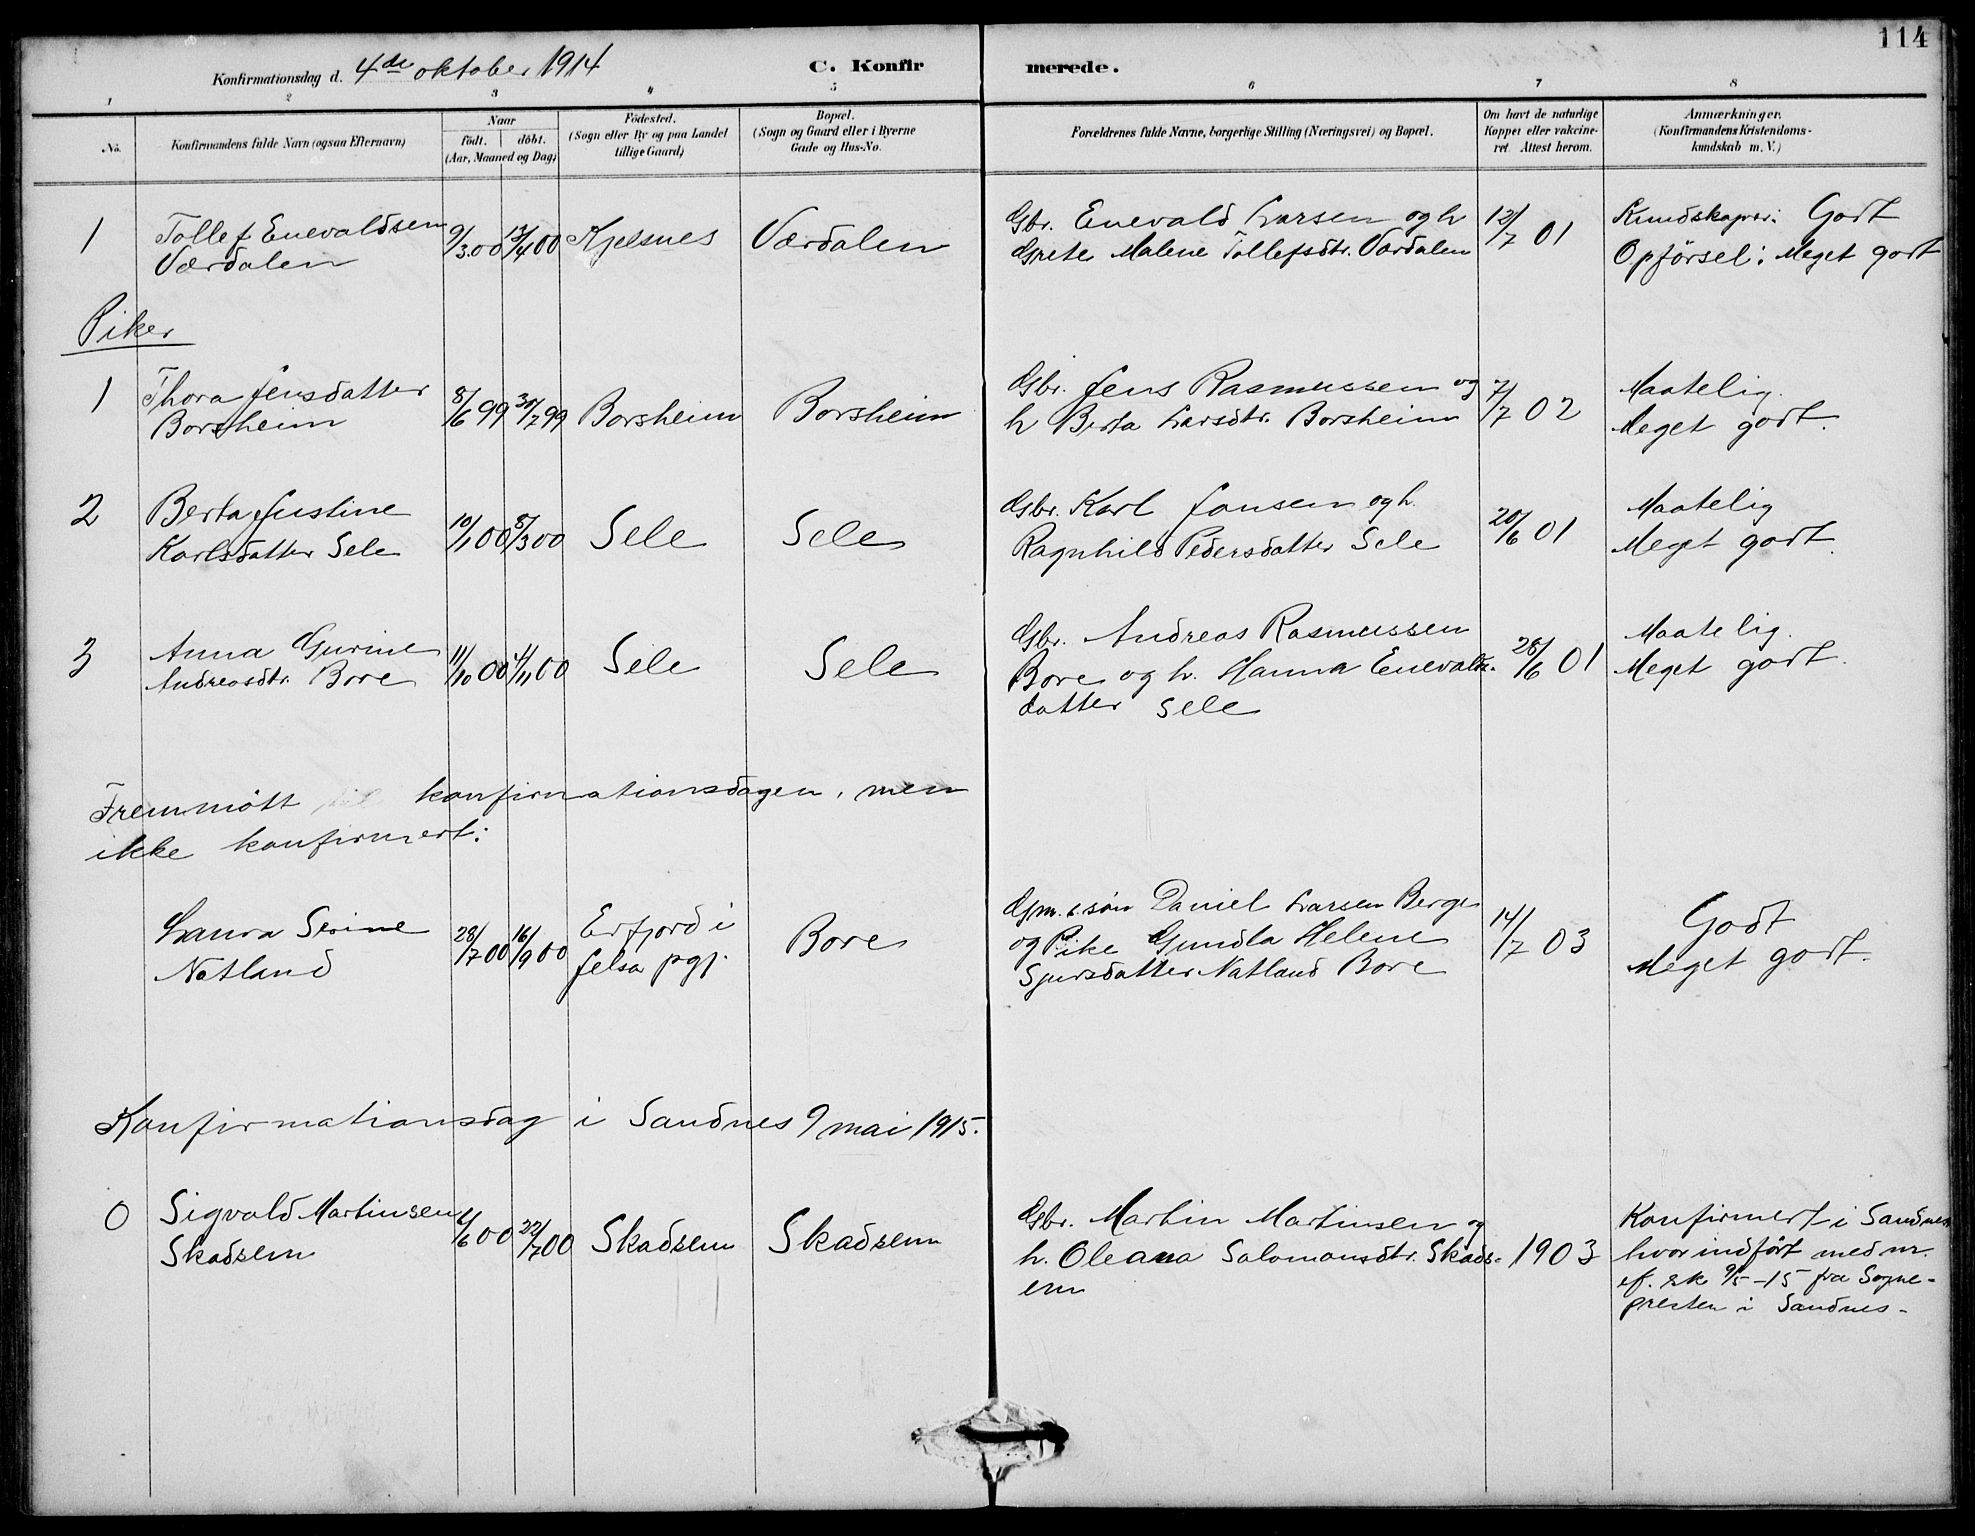 114
Konfirmationsdag d. 4de oktober 1914
C. Konfirmerede.
1 2 3 4 5 6 7 8
No.
Konfirmandens fulde Navn (ogsaa Efternavn)
Naar
født. | døbt.
(Aar, Maaned og Dag)
Fødested.
(Sogn eller By og paa Landet
tillige Gaard)
Bopæl.
(Sogn og Gaard eller i Byerne
Gade og Hus-No.
Forældrenes fulde Navne, borgerlige Stilling (Næringsvei) og Bopæl.
Om havt de naturlige
Kopper eller vakcine-
ret. Attest herom.
Anmærkninger.
(Konfirmandens Kristendoms-
kundskab m. V.)
1 Tollef Enevaldsen 9/3 00 13/4 00 Kjelsnes Værdalen Gbr. Enevald Larsen og h 12/7 01 Kundskaper: Godt
Værdalen Grete Malene Tollefsdtr. Værdalen Opførsel: Meget godt
Piker
1 Thora Jensdatter 8/6 99 30/7 99 Borsheim Borsheim Gbr. Jens Rasmussen og 7/7 02 Maatelig.
Borsheim h Berta Larsdtr. Borsheim Meget godt.
2 Berta Justine 10/1 00 8/3 00 Sele Sele Gbr. Karl Jonsen og h. 20/6 01 Maatelig
Karlsdatter Sele Ragnhild Pedersdatter Sele Meget godt.
3 Anna Gurine 11/10 00 4/11 00 Sele Sele Gbr. Andreas Rasmussen 28/6 01 Maatelig.
Andreasdtr. Bore Bore og h. Hanna Enevalds- Meget godt.
datter Sele
Fremmøtt konfirmationsdagen, men
ikke konfirmert:
Laura Serine 28/7 00 16/9 00 Erfjord i Bore Gm. s. søn Daniel Larsen Berge 14/7 03 Godt
Natland Jelsa pgj. og Pike Gundla Helene Meget godt.
Sjursdatter Natland Bore
Konfirmationsdag i Sandnes 9 mai 1915.
0 Sigvald Martinsen 4/6 00 22/7 00 Skadsem Skadsem Gbr. Martin Martinsen og 1903 Konfirmert i Sandnes
Skadsem h. Oleana Salomonsdtr. Skads- hvor indført med nr.
em ef. sk 9/5-15 fra Sogne-
presten i Sandnes-